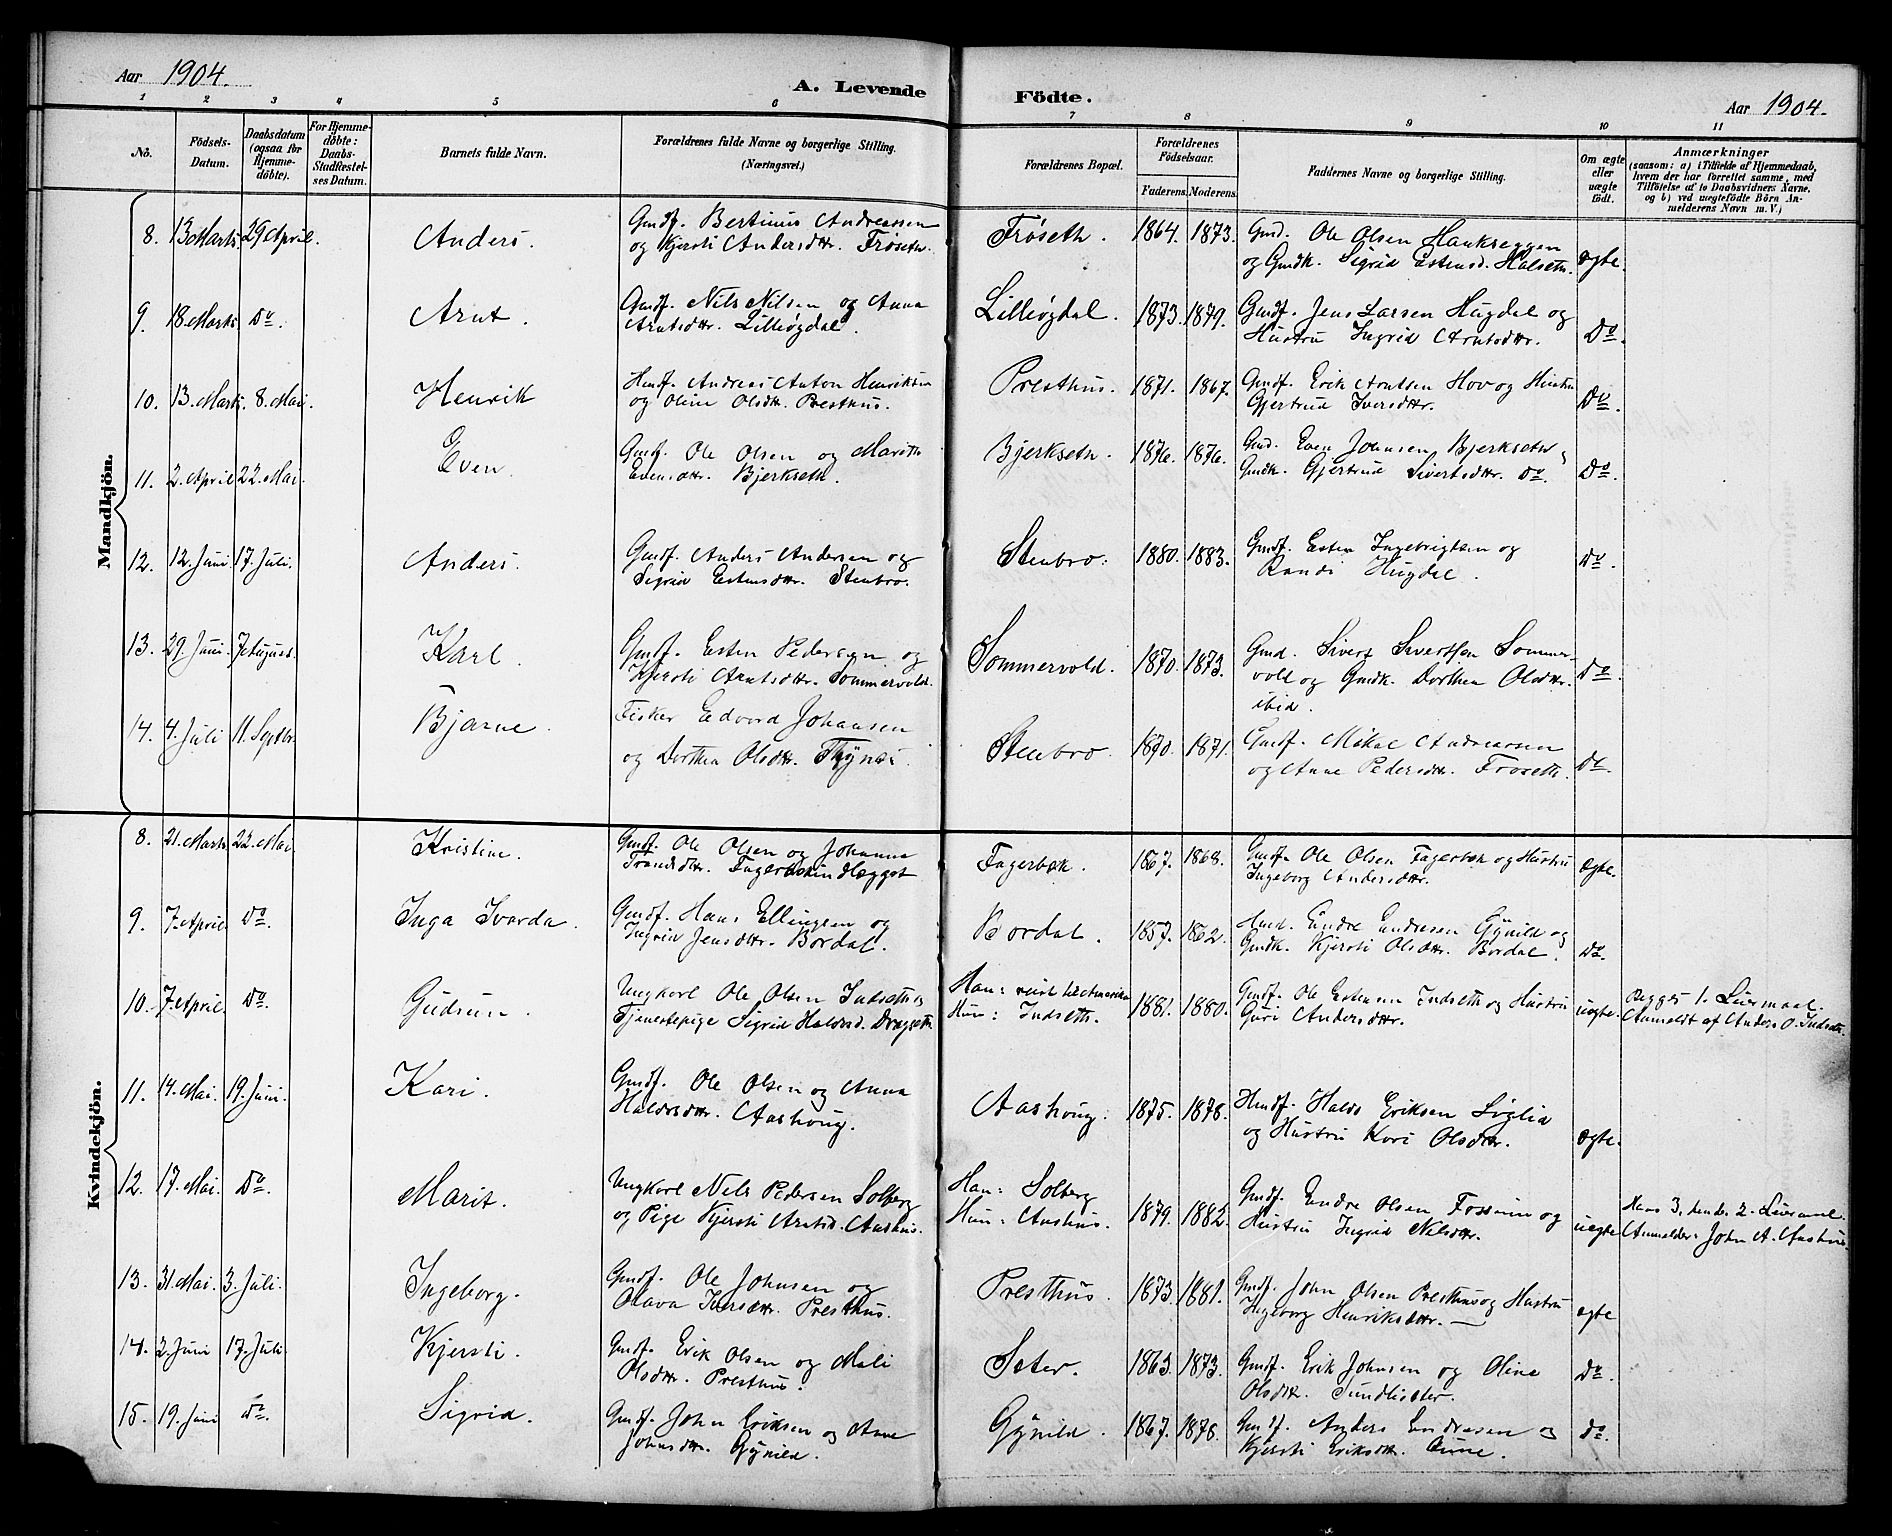 Aar 1904.
A. Levende Födte.
Aar 1904.
1 2 3 4 5 6 7 8 9 10 11
No.
Födsels-Datum.
Daabsdatum (ogsaa for Hjemme-döbte).
For Hjemme-döbte: Daabs-Stadfæstel-ses Datum.
Barnets fulde Navn.
Forældrenes fulde Navne og borgerlige Stilling. (Næringsvei.)
Forældrenes Bopæl.
Forældrenes Födselsaar.
Faderens. Moderens.
Faddernes Navne og borgerlige Stilling.
Om ægte eller uægte födt.
Anmærkninger
(saasom: a) i Tilfælde af Hjemmedaab, hvem der har forrettet samme, med Tilföielse af to Daabsvidners Navne, og b) ved uægtefödte Börn An-melderens Navn m. V.)
Mandkjön.
8. 13 Marts 29 April. Anders. Gmdf. Bertinus Andreassen
og Kjersti Andersdtr. Frøseth. Frøseth. 1864. 1873. Gmd. Ole Olsen Haukreggen
og Gmdk. Sigrid Estensd. Halseth. ægte.
9. 18. Marts Do. Arnt. Gmdf. Nils Nilsen og Anna
Arntsdtr. Lilleøgdal. Lilleøgdal. 1873. 1879. Gmdf. Jens Larsen Hugdal og
Hustru Ingrid Arntsdtr. Do.
10. 13. Marts. 8. Mai. Henrik Hmdf. Andreas Anton Henriksen
og Oline Olsdtr. Presthus. Presthus. 1871. 1867. Gmdf. Erik Arntsen Hov og Hustru
Gjertrud Iversdtr. Do.
11. 2. April 22. Mai Even. Gmdf. Ole Olsen og Marith
Evensdtr. Bjerkseth. Bjerkseth. 1876. 1876. Gmd. Even Johnsen Bjerkseth og
Gmdk. Gjertrud Sivertsdtr. do. Do.
12. 12. Juni 17. Juli. Anders. Gmdf. Anders Andersen og
Sigrid Estensdtr. Stenbro. Stenbro. 1880. 1883. Gmdf. Esten Ingebrigtsen og
Randi Hugdal. Do.
13. 29. Juni. 7 August. Karl. Gmdf. Esten Pedersen og
Kjersti Arntsdtr. Sommervold. Sommervold. 1870. 1873. Gmd. Sivert Sivertsen Sommer-
vold og Gmdk. Dorthea Olsdtr.
ibid. Do.
14. 4. Juli 11. Septbr. Bjarne. Fisker Edvard Johansen
og Dorthea Olsdtr. Thynes. Stenbro. 1870. 1871. Gmdf. Mikal Andreassen
og Anne Pedersdtr. Frøseth. Do.
Kvindekjön.
8. 21. Marts 22. Mai Kristine. Gmdf. Ole Olsen og Johanna
Trondsdtr. Fagerbækin Hægget Fagerbæk. 1867. 1868. Gmdf. Ole Olsen Fagerbæk og Hustru
Ingeborg Andersdtr. Ægte.
9. 7. April. Do. Inga Ivarda. Gmdf. Hans Ellingsen og
Ingrid Jensdtr. Bordal. Bordal. 1857. 1862. Hmd. Endre Endresen Gynild og
Gmdk. Kjersti Olsdtr. Bordal. Do.
10. 7. April. Do. Gudrun. Ungkarl Ole Olsen Indseth og
Tjenestepige Sigrid Haldosd. Dragseth. Han: reist til Amerika
Hun: Indseth. 1881. 1880. Gmdf. Ole Estensen Indseth og Hustru
Guri Andersdtr. uægte. Begges 1. Leiermaal.
Anmeldt af Anders O. Indseth.
11. 14. Mai. 19. Juni. Kari. Gmdf. Ole Olsen og Anna
Haldosdtr. Aashoug. Aashoug. 1875. 1878. Hmdf. Haldo Eriksen Loglia
og Hustru Kari Olsdtr. ægte.
12. 17. Mai. Do. Marit. Ungkarl Nils Pedersen Solberg
og Pige Kjersti Arntsd. Aashus. Han: Solberg
Hun: Aashus. 1879. 1882. Gmdf. Endre Olsen Fossum og
Hustru Ingrid Nilsdtr. uægte Hans 3, hendes 2. Leiermaal.
Anmelder: John A. Aashus.
13. 31. Mai. 3. Juli. Ingeborg. Gmdf. Ole Johnsen og
Olava Iversdtr. Presthus. Presthus. 1873. 1881. Gmdf. John Olsen Presthus og Hustru
Ingeborg Henriksdtr. ægte
14. 2. Juni 17. Juli Kjersti. Gmdf. Erik Olsen og Mali
Olsdtr. Presthus. Seter. 1863. 1873. Gmdf. Erik Johnsen og Oline
Olsdtr. Sundliseter. Do.
15. 19. Juni Do. Sigrid. Gmdf. John Eriksen og Ane
Johnsdtr. Gynild. Gynild. 1867. 1878. Gmdf. Anders Endresen og
Kjersti Eriksdtr. Aune. do.